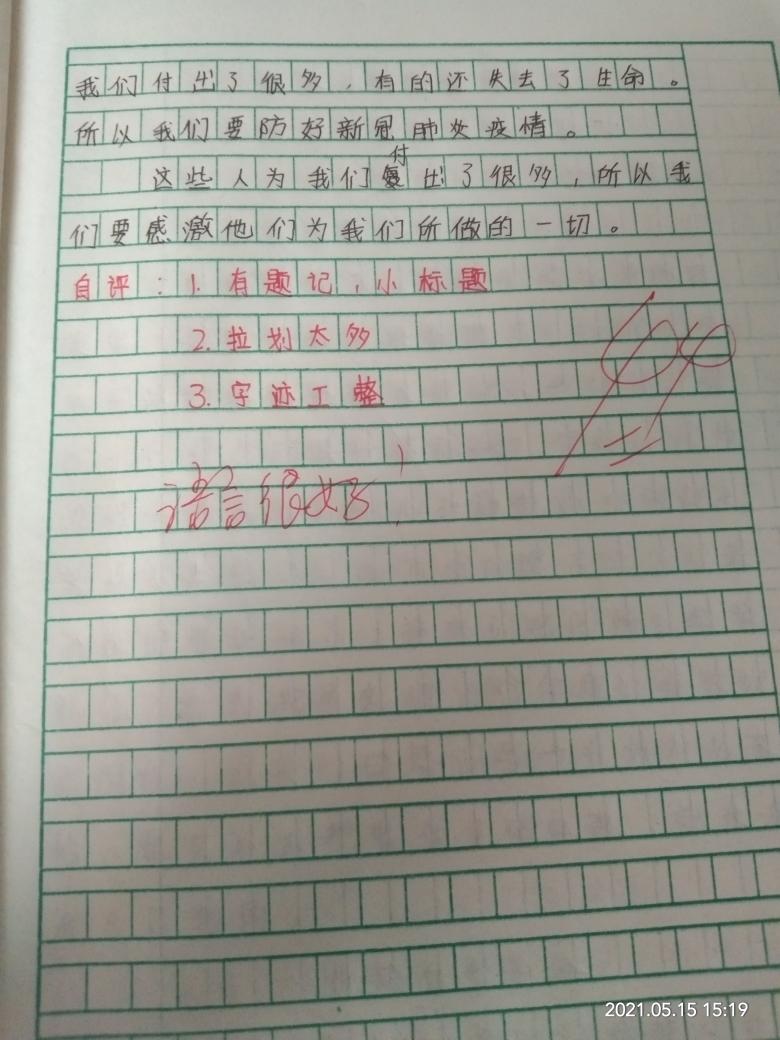 我们付出了很多，有的还失去了生命。
所以我们要防好新冠肺炎疫情。
付
这些人为我们出了很多，所以我
们要感激他们为我们所做的一切。
自评：1.有题记，小标题
2.拉划太多
3.字迹工整
语言很好！
2021.05.15 15:19